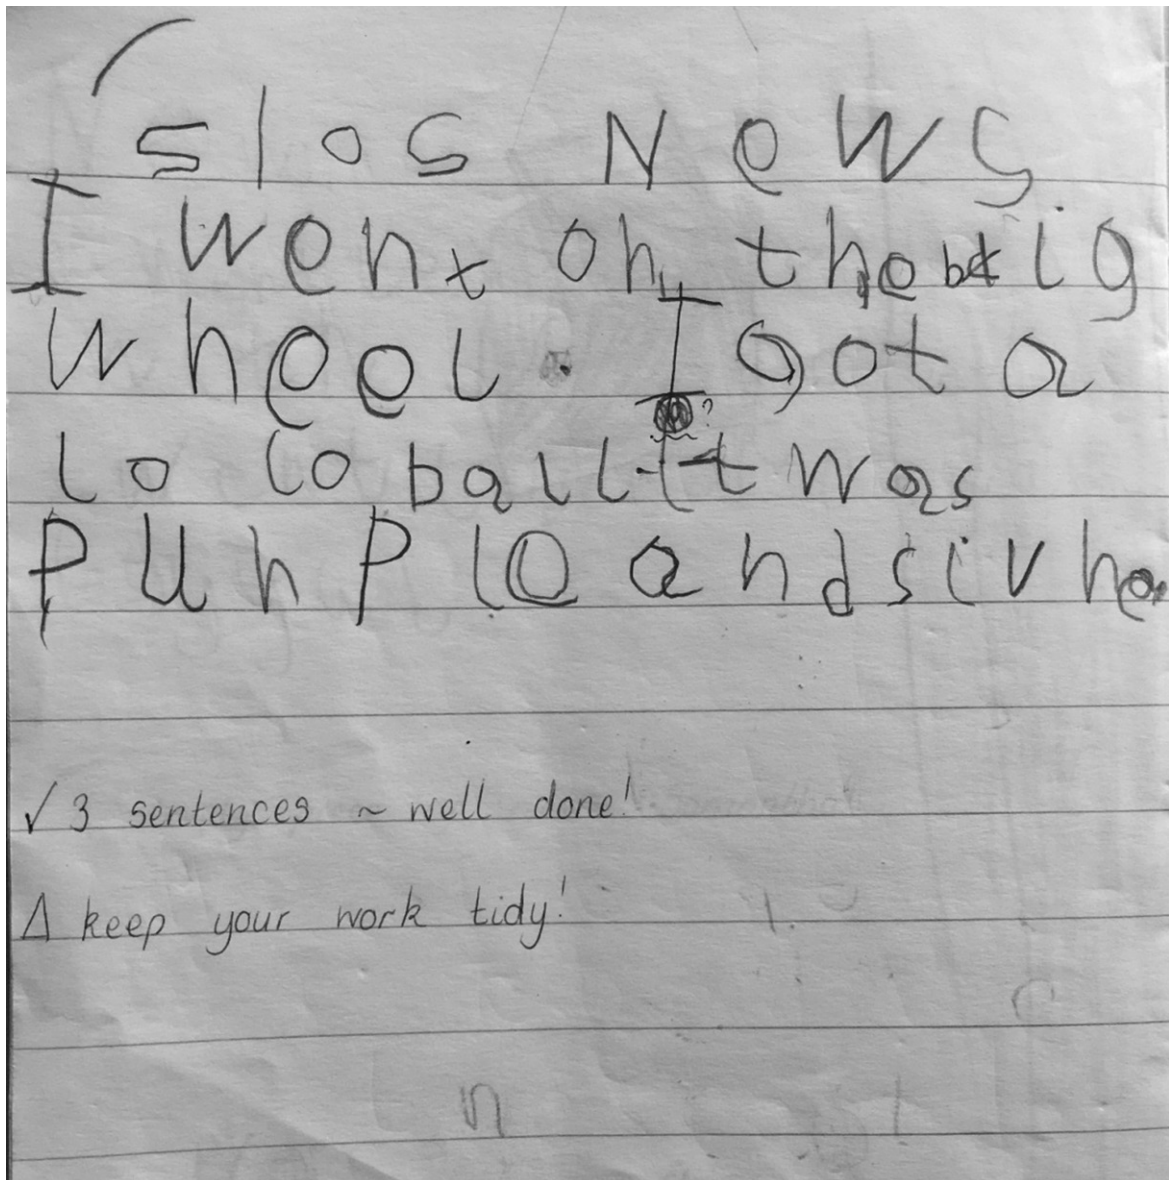 slos News
I went on the big
wheel. I got a
lo lo ball. it was
purple and silvr
✓ 3 sentences ~ well done!
Δ keep your work tidy!